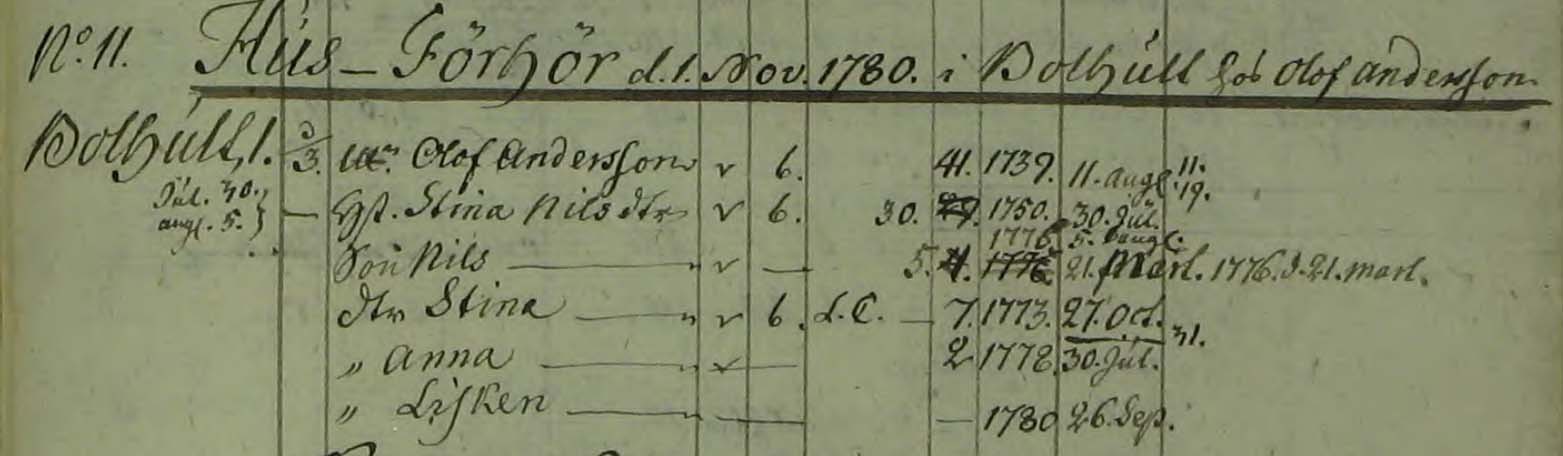 No. 11. Hus-Förhör d. 1. Nov. 1780. i Bolhult hos Olof Andersson
Bolhult, 1. 3. Olof Andersson v 6. 41. 1739. 11. Aug. 11. 19.
Jul. 30. Hst. Stina Nils dtr v 6. 30. 29. 1750. 30. Jul.
augl. 5. 1776. 5. augl.
Son Nils — v — 5. 4. 1776 21. Mart. 1776. d. 21. mart.
dtr Stina — " v 6. L. C. — 7. 1773. 27. Oct.
31.
" Anna — " v — 2 1778. 30. Jul.
" Lisken — " — — 1780 26. Sep.